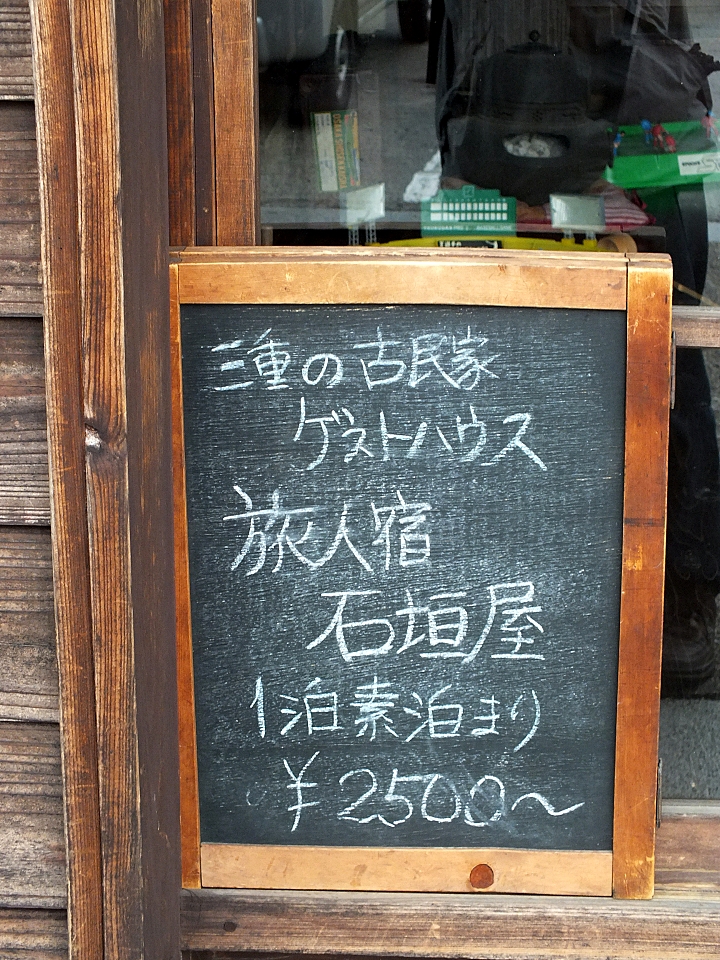 三重の古民家
ゲストハウス
旅人宿
石垣屋
1泊素泊まり
¥2500〜